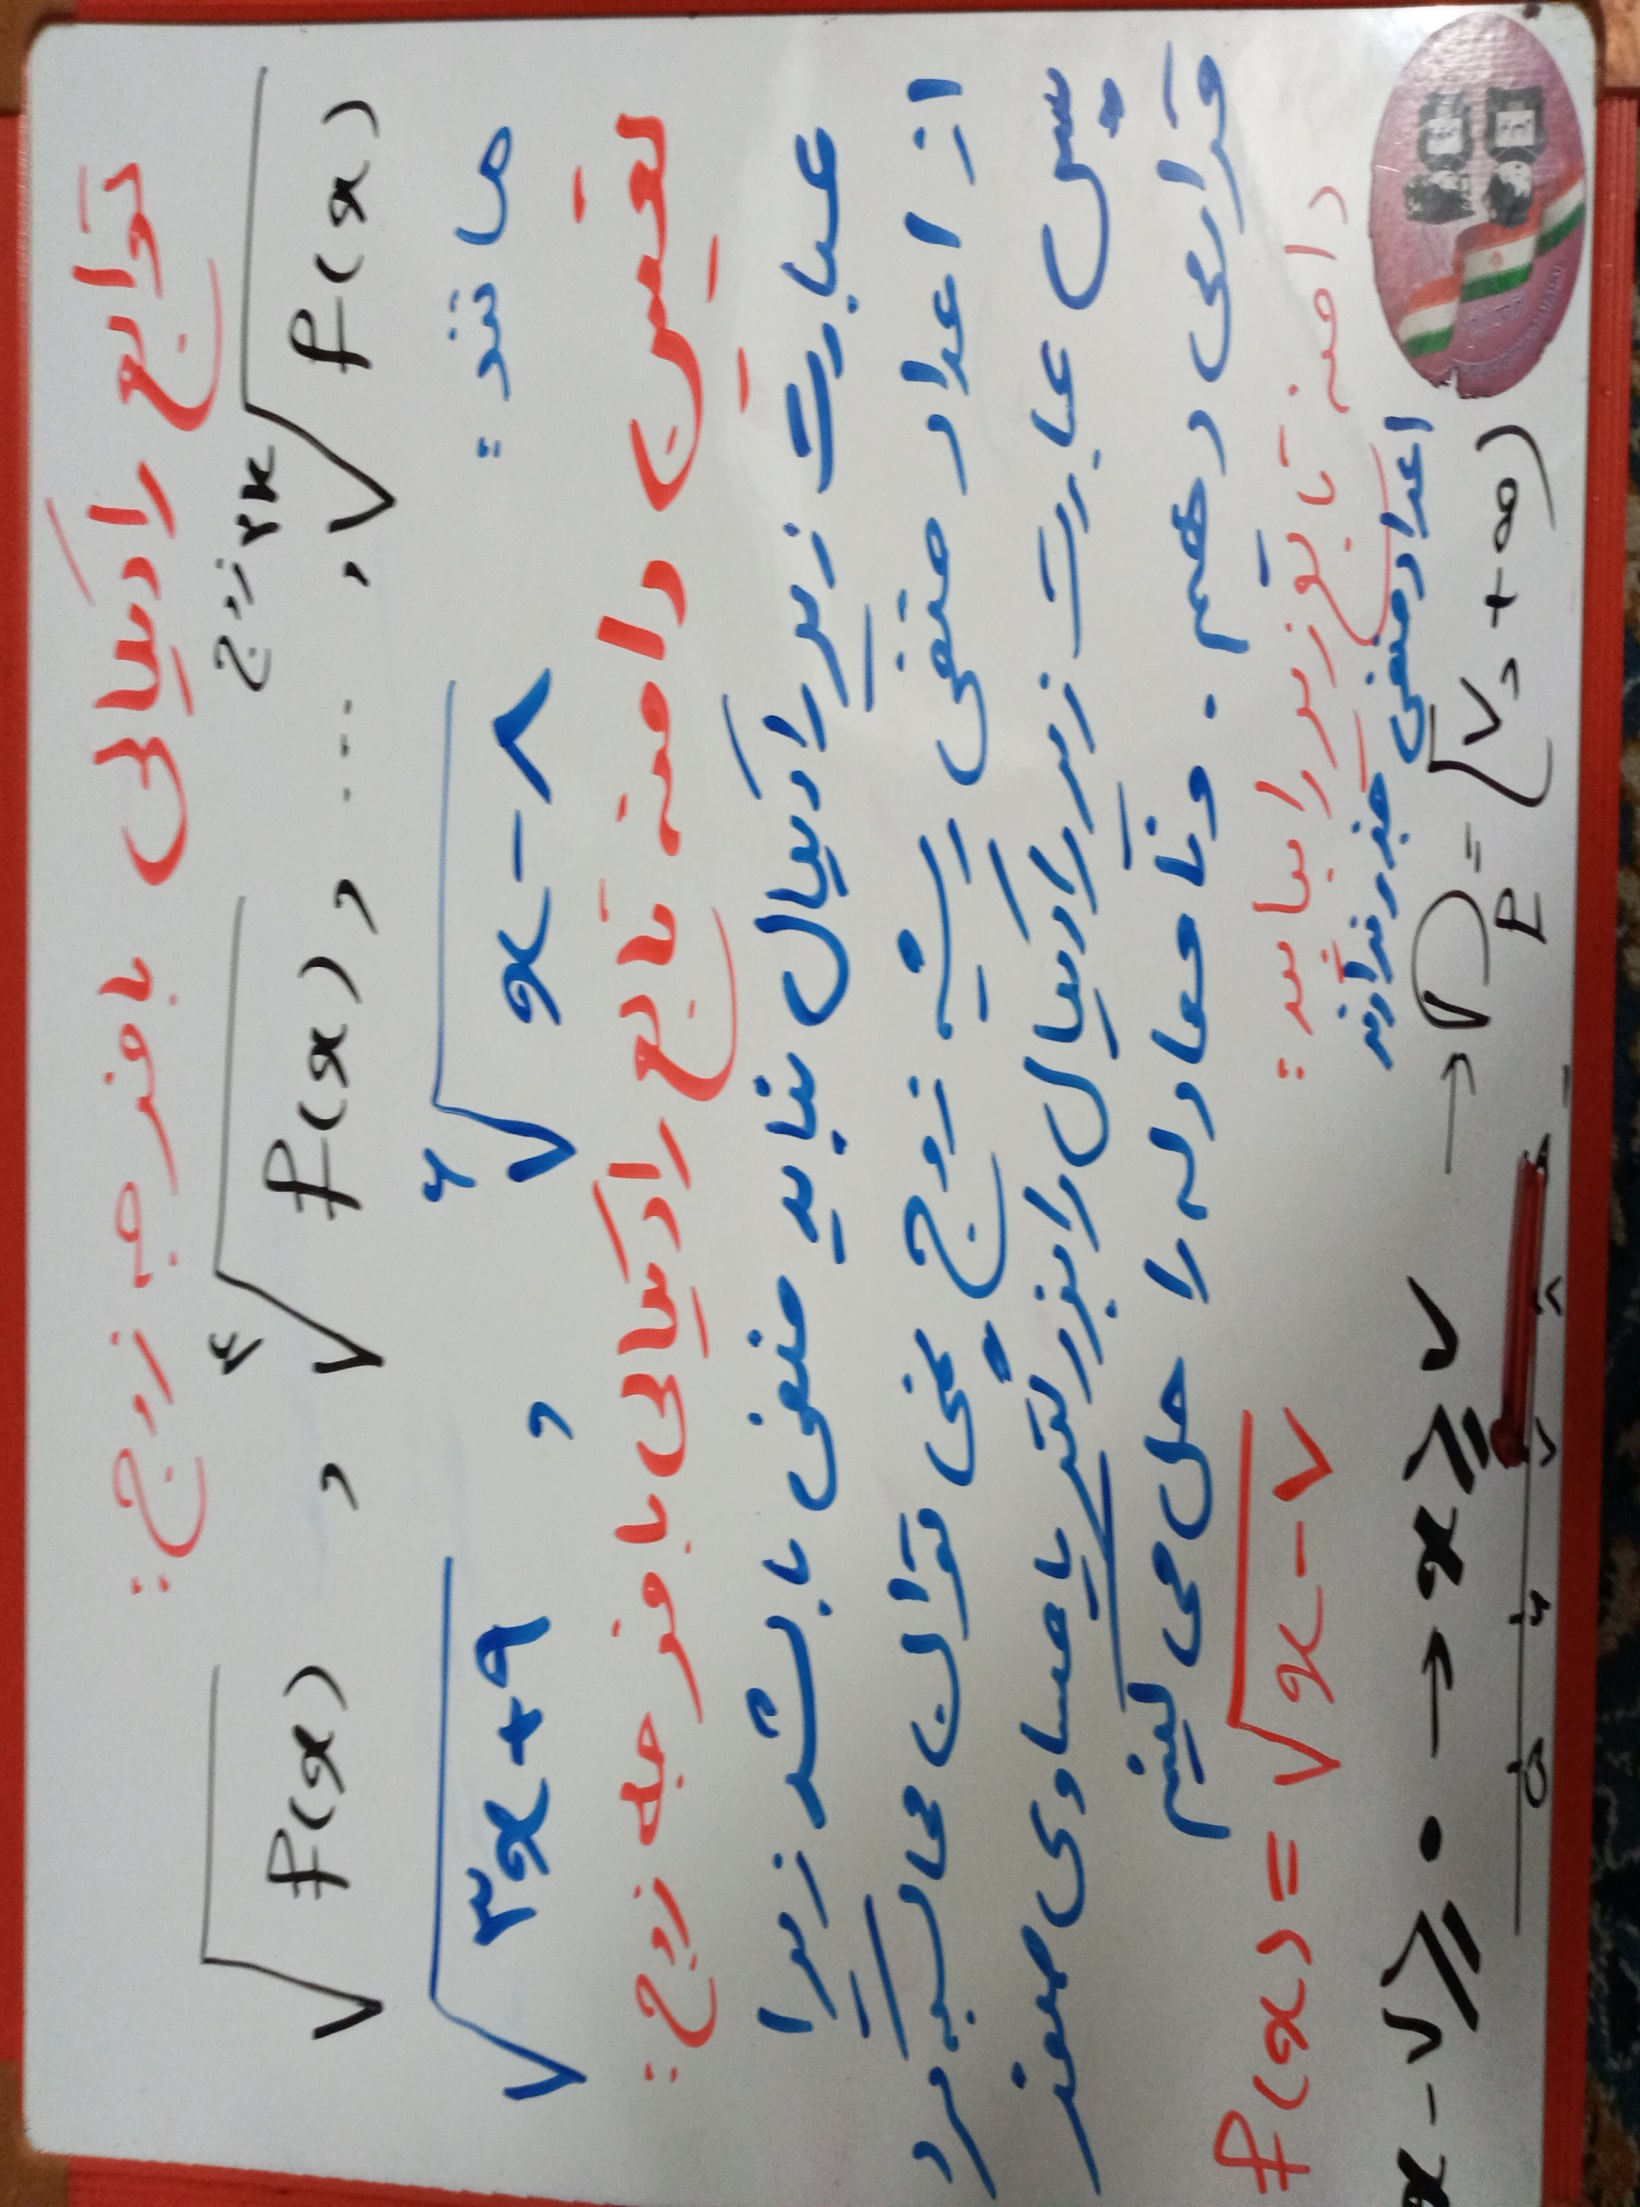 توابع رادیکالی با فرجه زوج:
√f(x) , ⁴√f(x) , ... , ²ᵏ√f(x) زوج
مانند: ⁶√x-۸ , √۳x+۹
تعیین دامنه تابع رادیکالی با فرجه زوج:
عبارت زیر رادیکال نباید منفی باشد زیرا
از اعداد منفی ریشه زوج نمی توان محاسبه کرد
پس عبارت زیر رادیکال را بزرگتر یا مساوی صفر
قرار می دهیم. و نامعادله را حل می کنیم
دامنه تابع زیر را بیابید: f(x) = √x-۷
اعداد منفی جذر ندارند
x-۷ ⩾ ۰ → x ⩾ ۷ → D_f = [۷, +∞)
۵ ۶ ۷ ۸